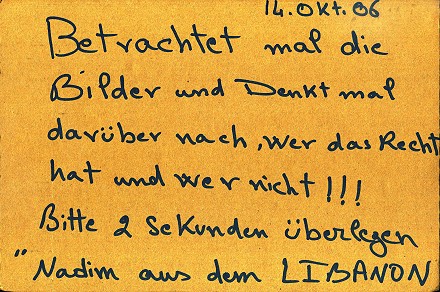 14. Okt. 06
Betrachtet mal die
Bilder und Denkt mal
darüber nach, wer das Recht
hat und wer nicht!!!
Bitte 2 Sekunden überlegen
"Nadim aus dem LIBANON